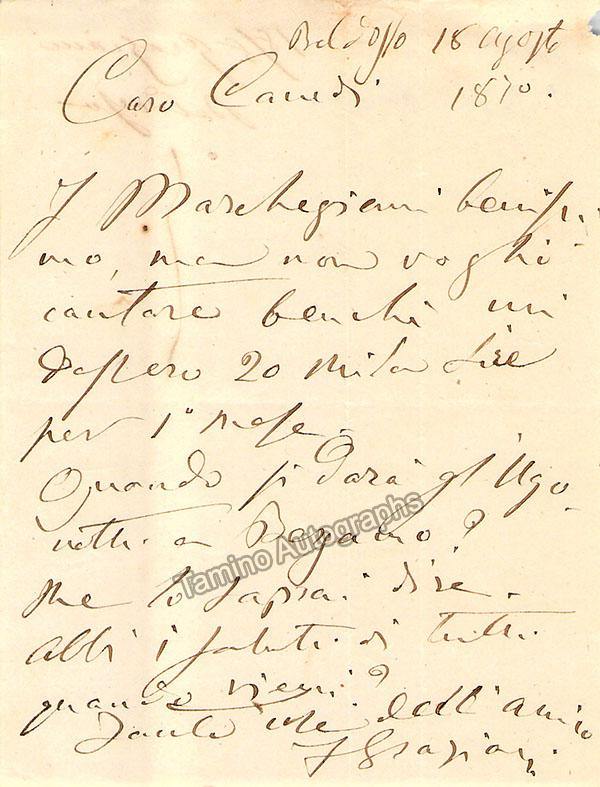 Beldosso 18 agosto
Caro Canedi 1870.
I Marchegiani benissi-
mo, ma non voglio
cantare benchè mi
dassero 20 mila lire
per 1° mese.
Quando si darà gl'Ugo-
notti a Bergamo?
Me lo saprai dire.
Abbi i saluti di tutti
quando vieni?
dell'amico
Graziani
Tamino Autographs